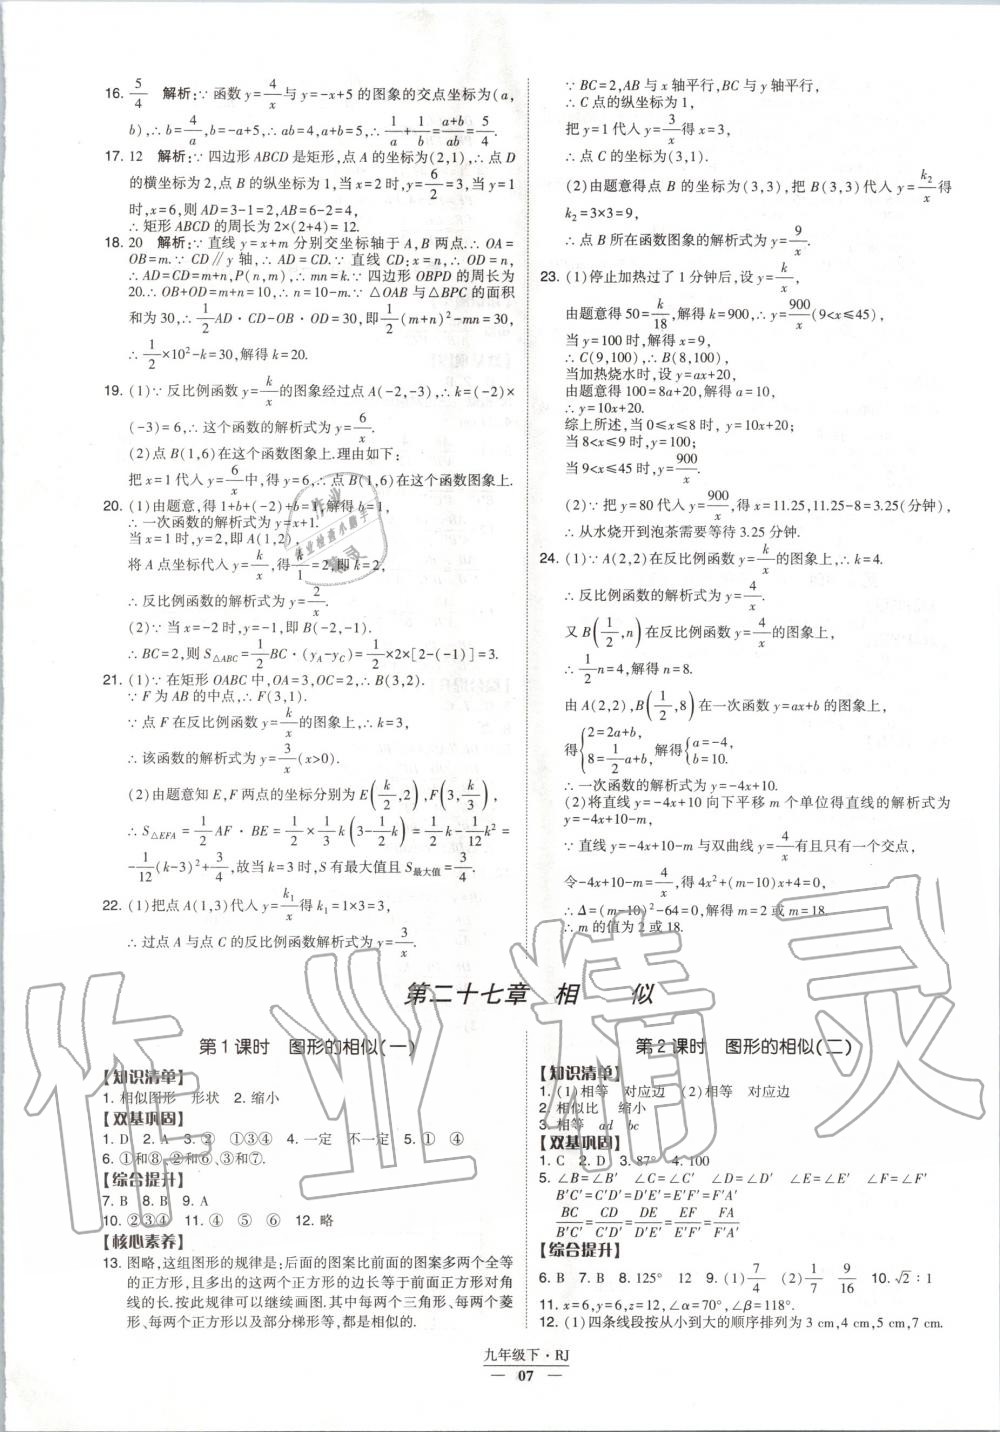 16. 5/4 解析:∵ 函数 y=4/x与 y=-x+5 的图象的交点坐标为(a,
b),∴ b=4/a,b=-a+5,∴ ab=4,a+b=5,∴ 1/a+1/b=(a+b)/ab=5/4.
17. 12 解析:∵ 四边形 ABCD 是矩形,点 A 的坐标为(2,1),∴ 点 D
的横坐标为 2,点 B 的纵坐标为 1,当 x=2 时,y=6/2=3,当 y=1
时,x=6,则 AD=3-1=2,AB=6-2=4,
∴ 矩形 ABCD 的周长为 2×(2+4)=12.
18. 20 解析:∵ 直线 y=x+m 分别交坐标轴于 A,B 两点.∴ OA=
OB=m.∵ CD∥y 轴,∴ AD=CD.∵ 直线 CD:x=n,∴ OD=n,
∴ AD=CD=m+n,P(n,m),∴ mn=k.∵ 四边形 OBPD 的周长为
20.∴ OB+OD=m+n=10,∴ n=10-m.∵ △OAB 与△BPC 的面积
和为 30,∴ 1/2AD·CD-OB·OD=30,即1/2(m+n)²-mn=30,
∴ 1/2×10²-k=30,解得 k=20.
19. (1)∵ 反比例函数 y=k/x的图象经过点 A(-2,-3),∴ k=(-2)×
(-3)=6,∴ 这个函数的解析式为 y=6/x.
(2)点 B(1,6)在这个函数图象上.理由如下:
把 x=1 代入 y=6/x中,得 y=6,∴ 点 B(1,6)在这个函数图象上.
20. (1)由题意,得 1+b+(-2)+b=1,解得 b=1,
∴ 一次函数的解析式为 y=x+1.
当 x=1 时,y=2,即 A(1,2),
将 A 点坐标代入 y=k/x,得k/1=2,即 k=2,
∴ 反比例函数的解析式为 y=2/x.
(2)∵ 当 x=-2 时,y=-1,即 B(-2,-1).
∴ BC=2,则 S△ABC=1/2BC·(yA-yC)=1/2×2×[2-(-1)]=3.
21. (1)∵ 在矩形 OABC 中,OA=3,OC=2,∴ B(3,2).
∵ F 为 AB 的中点,∴ F(3,1).
∵ 点 F 在反比例函数 y=k/x的图象上,∴ k=3,
∴ 该函数的解析式为 y=3/x(x>0).
(2)由题意知 E,F 两点的坐标分别为 E(k/2,2),F(3,k/3),
∴ S△EFA=1/2AF·BE=1/2×1/3k(3-1/2k)=1/2k-1/12k²=
-1/12(k-3)²+3/4,故当 k=3 时,S 有最大值且 S最大值=3/4.
22. (1)把点 A(1,3)代入 y=k₁/x得 k₁=1×3=3,
∴ 过点 A 与点 C 的反比例函数解析式为 y=3/x.
∵ BC=2,AB 与 x 轴平行,BC 与 y 轴平行,
∴ C 点的纵坐标为 1,
把 y=1 代入 y=3/x得 x=3,
∴ 点 C 的坐标为(3,1).
(2)由题意得点 B 的坐标为(3,3),把 B(3,3)代入 y=k₂/x得
k₂=3×3=9,
∴ 点 B 所在函数图象的解析式为 y=9/x.
23. (1)停止加热过了 1 分钟后,设 y=k/x,
由题意得 50=k/18,解得 k=900,∴ y=900/x(9<x≤45),
当 y=100 时,解得 x=9,
∴ C(9,100),∴ B(8,100),
当加热烧水时,设 y=ax+20,
由题意得 100=8a+20,解得 a=10,
∴ y=10x+20.
综上所述,当 0≤x≤8 时,y=10x+20;
当 8<x≤9 时,y=100;
当 9<x≤45 时,y=900/x.
(2)∵ 把 y=80 代入 y=900/x,得 x=11.25,11.25-8=3.25(分钟),
∴ 从水烧开到泡茶需要等待 3.25 分钟.
24. (1)∵ A(2,2)在反比例函数 y=k/x的图象上,∴ k=4.
∴ 反比例函数的解析式为 y=4/x.
又 B(1/2,n)在反比例函数 y=4/x的图象上,
∴ 1/2n=4,解得 n=8.
由 A(2,2),B(1/2,8)在一次函数 y=ax+b 的图象上,
得{2=2a+b, 8=1/2a+b,解得{a=-4, b=10.
∴ 一次函数的解析式为 y=-4x+10.
(2)将直线 y=-4x+10 向下平移 m 个单位得直线的解析式为
y=-4x+10-m,
∵ 直线 y=-4x+10-m 与双曲线 y=4/x有且只有一个交点,
令-4x+10-m=4/x,得 4x²+(m-10)x+4=0,
∴ Δ=(m-10)²-64=0,解得 m=2 或 m=18.
∴ m 的值为 2 或 18.
第二十七章 相 似
第 1 课时 图形的相似(一)
【知识清单】
1. 相似图形 形状 2. 缩小
【双基巩固】
1. D 2. A 3. ② ①③④ 4. 一定 不一定 5. ① ④
6. ①和⑧,②和⑥,③和⑦.
【综合提升】
7. B 8. B 9. A
10. ②③④ 11. ④ ⑤ ⑥ 12. 略
【核心素养】
13. 图略,这组图形的规律是:后面的图案比前面的图案多两个全等
的正方形,且多出的这两个正方形的边长等于前面正方形对角
线的长.按此规律可以继续画图.其中每两个三角形、每两个菱
形、每两个正方形以及部分梯形等,都是相似的.
第 2 课时 图形的相似(二)
【知识清单】
1. (1)相等 对应边 (2)相等 对应边
2. 相似比 缩小
3. 相等 ad bc
【双基巩固】
1. C 2. D 3. 87° 4. 100
5. ∠B=∠B′ ∠C=∠C′ ∠D=∠D′ ∠E=∠E′ ∠F=∠F′
B′C′=C′D′=D′E′=E′F′=F′A′
BC/B′C′=CD/C′D′=DE/D′E′=EF/E′F′=FA/F′A′
【综合提升】
6. B 7. B 8. 125° 12 9. (1)7/4 (2)1/7 9/16 10. √2∶1
11. x=6,y=6,z=12,∠α=70°,∠β=118°.
12. (1)四条线段按从小到大的顺序排列为 3 cm,4 cm,5 cm,7 cm.
九年级下·RJ
07
作业精灵